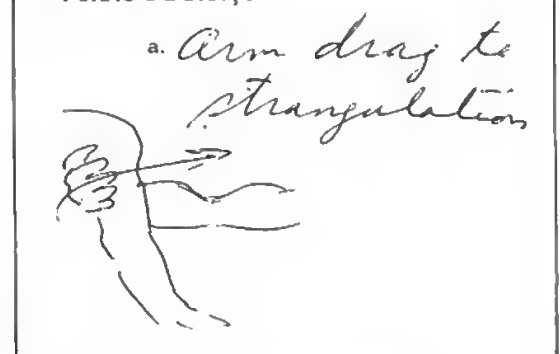 a. Arm drag to
strangulation